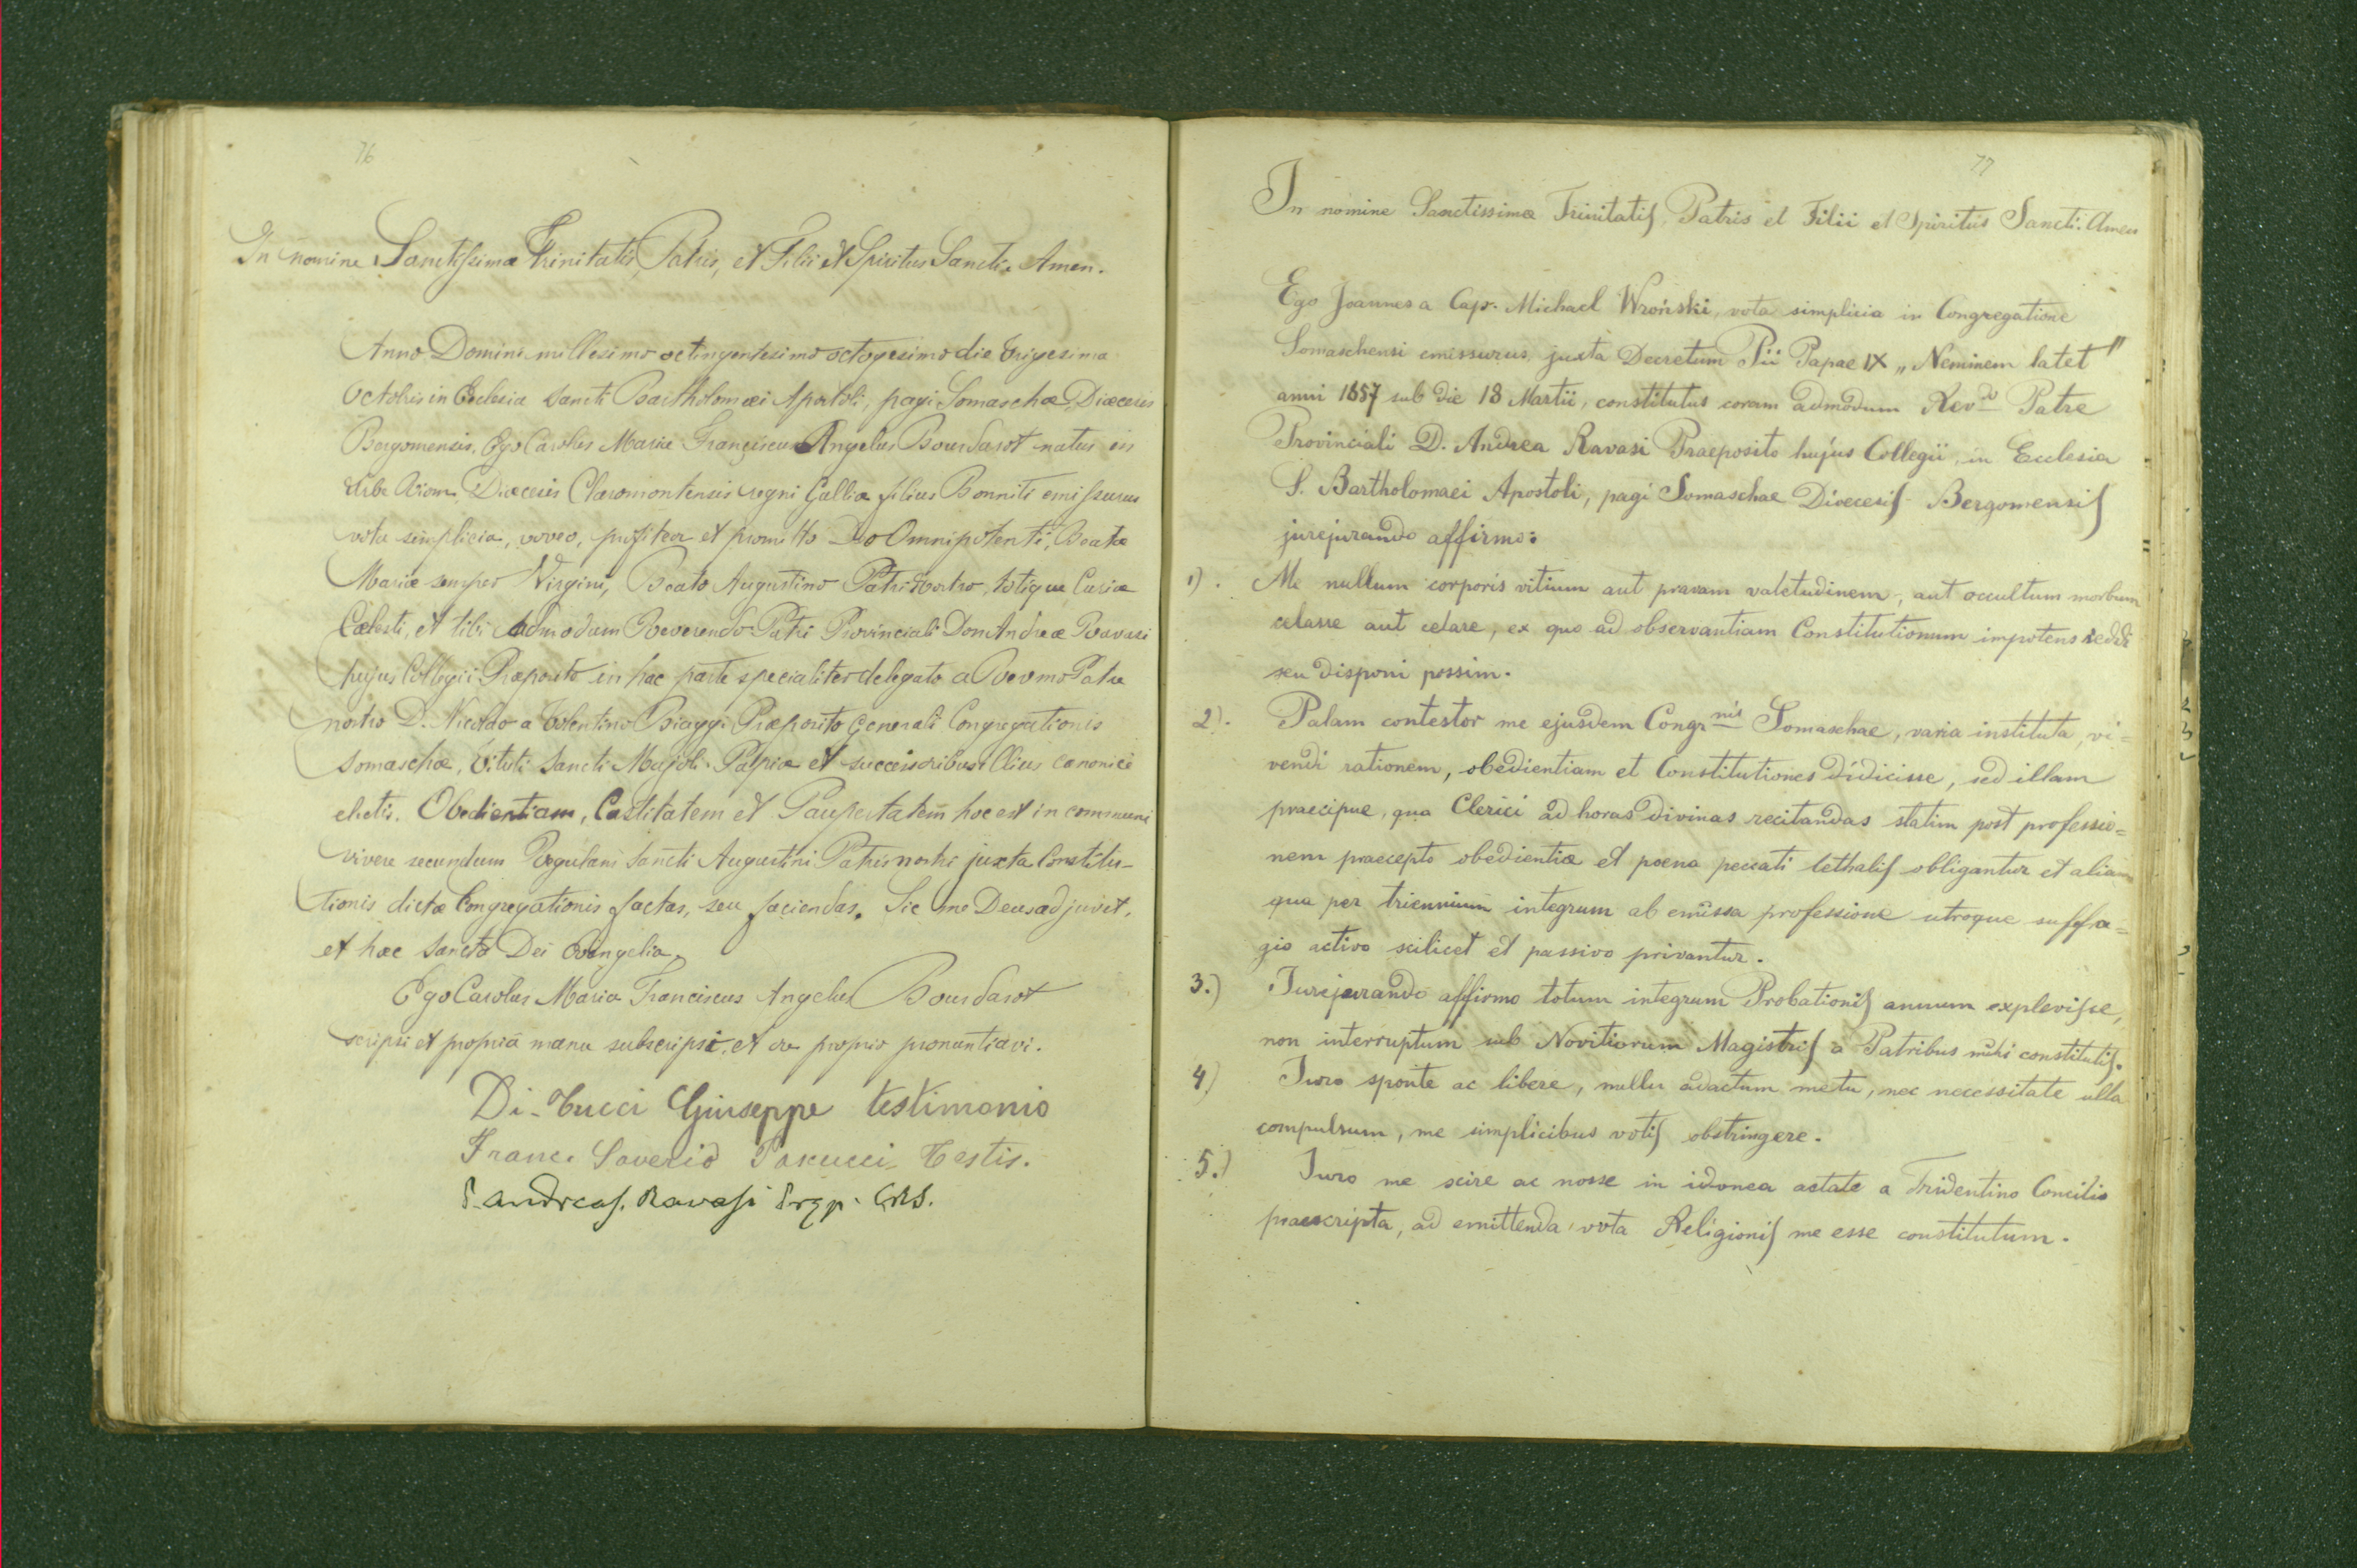 76
In nomine Sanctissimæ Trinitatis, Patris, et Filii et Spiritus Sancti. Amen.
Anno Domini millesimo octingentesimo octogesimo die trigesima
Octobris in Ecclesia Sancti Bartholomæi Apostoli, pagi Somaschæ, Diæcesis
Bergomensis. Ego Carolus Maria Franciscus Angelus Bourdasot natus in
Urbe Diæcesis Claromontensis regni Galliæ filius Bonniti emissurus
vota simplicia, voveo, profiteor et promitto Deo Omnipotenti, Beatæ
Mariæ semper Virgini, Beato Augustino Patri nostro, totique Curiæ
Cælesti, et tibi admodum Reverendo Patri Provinciali Don Andreæ Ravasi
hujus Collegii Præposito in hac parte specialiter delegato a Revmo Patre
nostro D. Nicolao a Tolentino Biaggi Præposito Generali Congregationis
Somaschæ, tituli Sancti Majoli Papiæ et successoribus illius canonice
electis. Obedientiam, Castitatem et Paupertatem hoc est in communi
vivere secundum Regulam Sancti Augustini Patris nostri juxta Constitu-
tionis dictæ Congregationis factas, seu faciendas. Sic me Deus adjuvet,
et hæc Sancta Dei Evangelia.
Ego Carolus Maria Franciscus Angelus Bourdasot
scripsi et propriâ manu subscripsi, et ore proprio pronuntiavi.
Di-Tucci Giuseppe testimonio
Franc. Saverio Testis.
P. Andreas. Ravasi Prep. CRS.
77
In nomine Sanctissimæ Trinitatis, Patris et Filii et Spiritus Sancti. Amen
Ego Joannes a Cap. Michael Wroński, vota simplicia in Congregatione
Somaschensi emissurus, juxta Decretum Pii Papae IX „Neminem latet"
anni 1857 sub die 18 Martii, constitutus coram admodum Rev.do Patre
Provinciali D. Andrea Ravasi Praeposito hujus Collegii, in Ecclesia
S. Bartholomaei Apostoli, pagi Somaschae Dioecesis Bergomensis
jurejurando affirmo:
1). Me nullum corporis vitium aut pravam valetudinem, aut occultum morbum
celasse aut celare, ex quo ad observantiam Constitutionum impotens reddi
seu disponi possim.
2). Palam contestor me ejusdem Congr.nis Somaschae, varia instituta, vi=
vendi rationem, obedientiam et Constitutiones didicisse, sed illam
praecipue, qua Clerici ad horas divinas recitandas statim post professio=
nem praecepto obedientiæ et poena peccati lethalis obligantur et aliam
qua per triennium integrum ab emissa professione utroque suffra=
gio activo scilicet et passivo privantur.
3.) Jurejurando affirmo totum integrum Probationis annum explevisse,
non interruptum sub Novitiorum Magistris a Patribus mihi constitutis.
4) Juro sponte ac libere, nullu adactum metu, nec necessitate ulla
compulsum, me simplicibus votis obstringere.
5.) Juro me scire ac nosse in idonea aetate a Tridentino Concilio
praescripta, ad emittenda vota Religionis me esse constitutum.